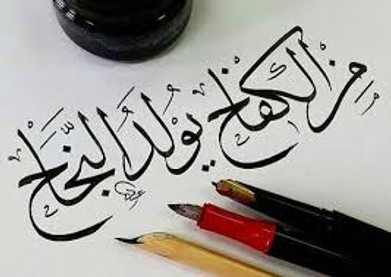 مِنَ الكفاحِ يُولَدُ النَّجَاحُ